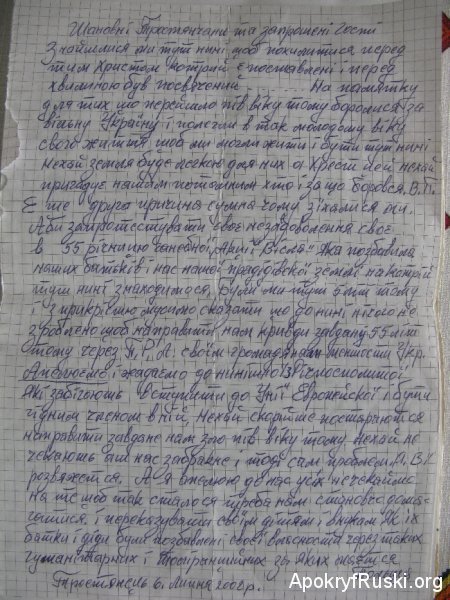 Шановні Тростянчани та запрошені Гості
Знайшлися ми тут нині щоб похилитися перед
тим Хрестом котрий є поставлені і перед
хвилиною був посвячений ......... На памятку
для тих що перейшло пів віку тому боролися за
вільну Україну і полягли в так молодому віку
свого життя щоб ми могли жити і бути тут нині
Нехай земля буде легкою для них а Хрест цей нехай
пригадує нашим потомкам хто і за що боровся. В.П.
Є ще друга причина сумна чому зїхалися ми.
Аби запротестувати своє незадоволення своє
в 55 річницю ганебної Акції "Вісла" Яка позбавила
наших батьків і нас нашої прадідівської землі на котрій
тут нині знаходимося. Були ми тут тому
і з прикрістю мушу сказати що до нині нічого не
зроблено щоб направити нам кривди завдану 55 літ
тому через П.Р.Л. своїм громадянам меншости Укр.
Апелюємо і жадаємо до нинішно Річипосполитої
Які забігають вступити до Унії Европейскої і бути
гідним членом в ній, Нехай скорше постараються
направити завдане нам зло пів віку тому Нехай не
чекають аж нас забракне і тоді сам проблєм
розвяжется. А я апелюю до нас усіх не чекаймо
на те щоб так сталося треба нам становчо дома-
гатися. і переказувати своїм дітям і внукам Як їх
батьки і діди були позбавлені своєї власности через таких
гуманітарних і
Тростянець 6. Липня 2002 р.
ApokryfRuski.org